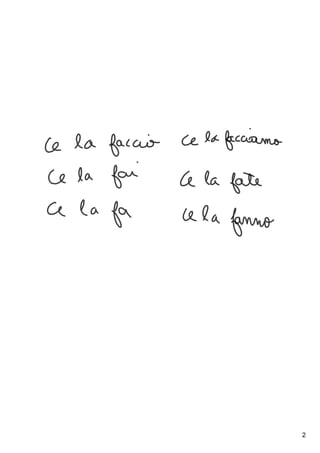 ce la faccio ce la facciamo
ce la fai ce la fate
ce la fa ce la fanno
2